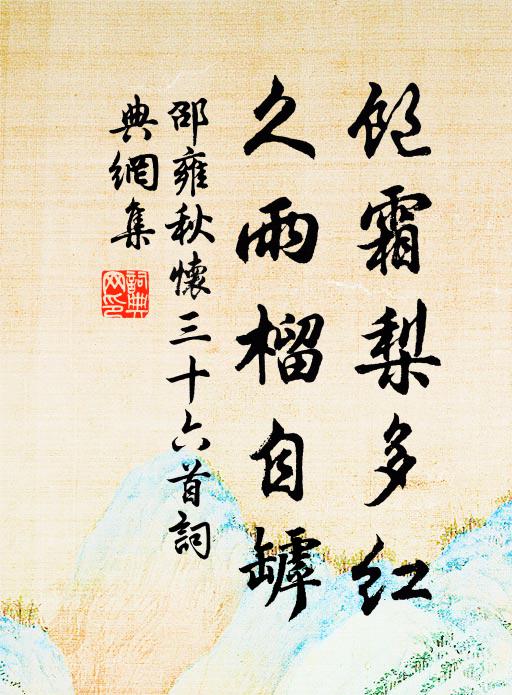 飽霜梨多紅
久雨榴自罅
邵雍秋懷三十六首詞
典網集
詞典
网印